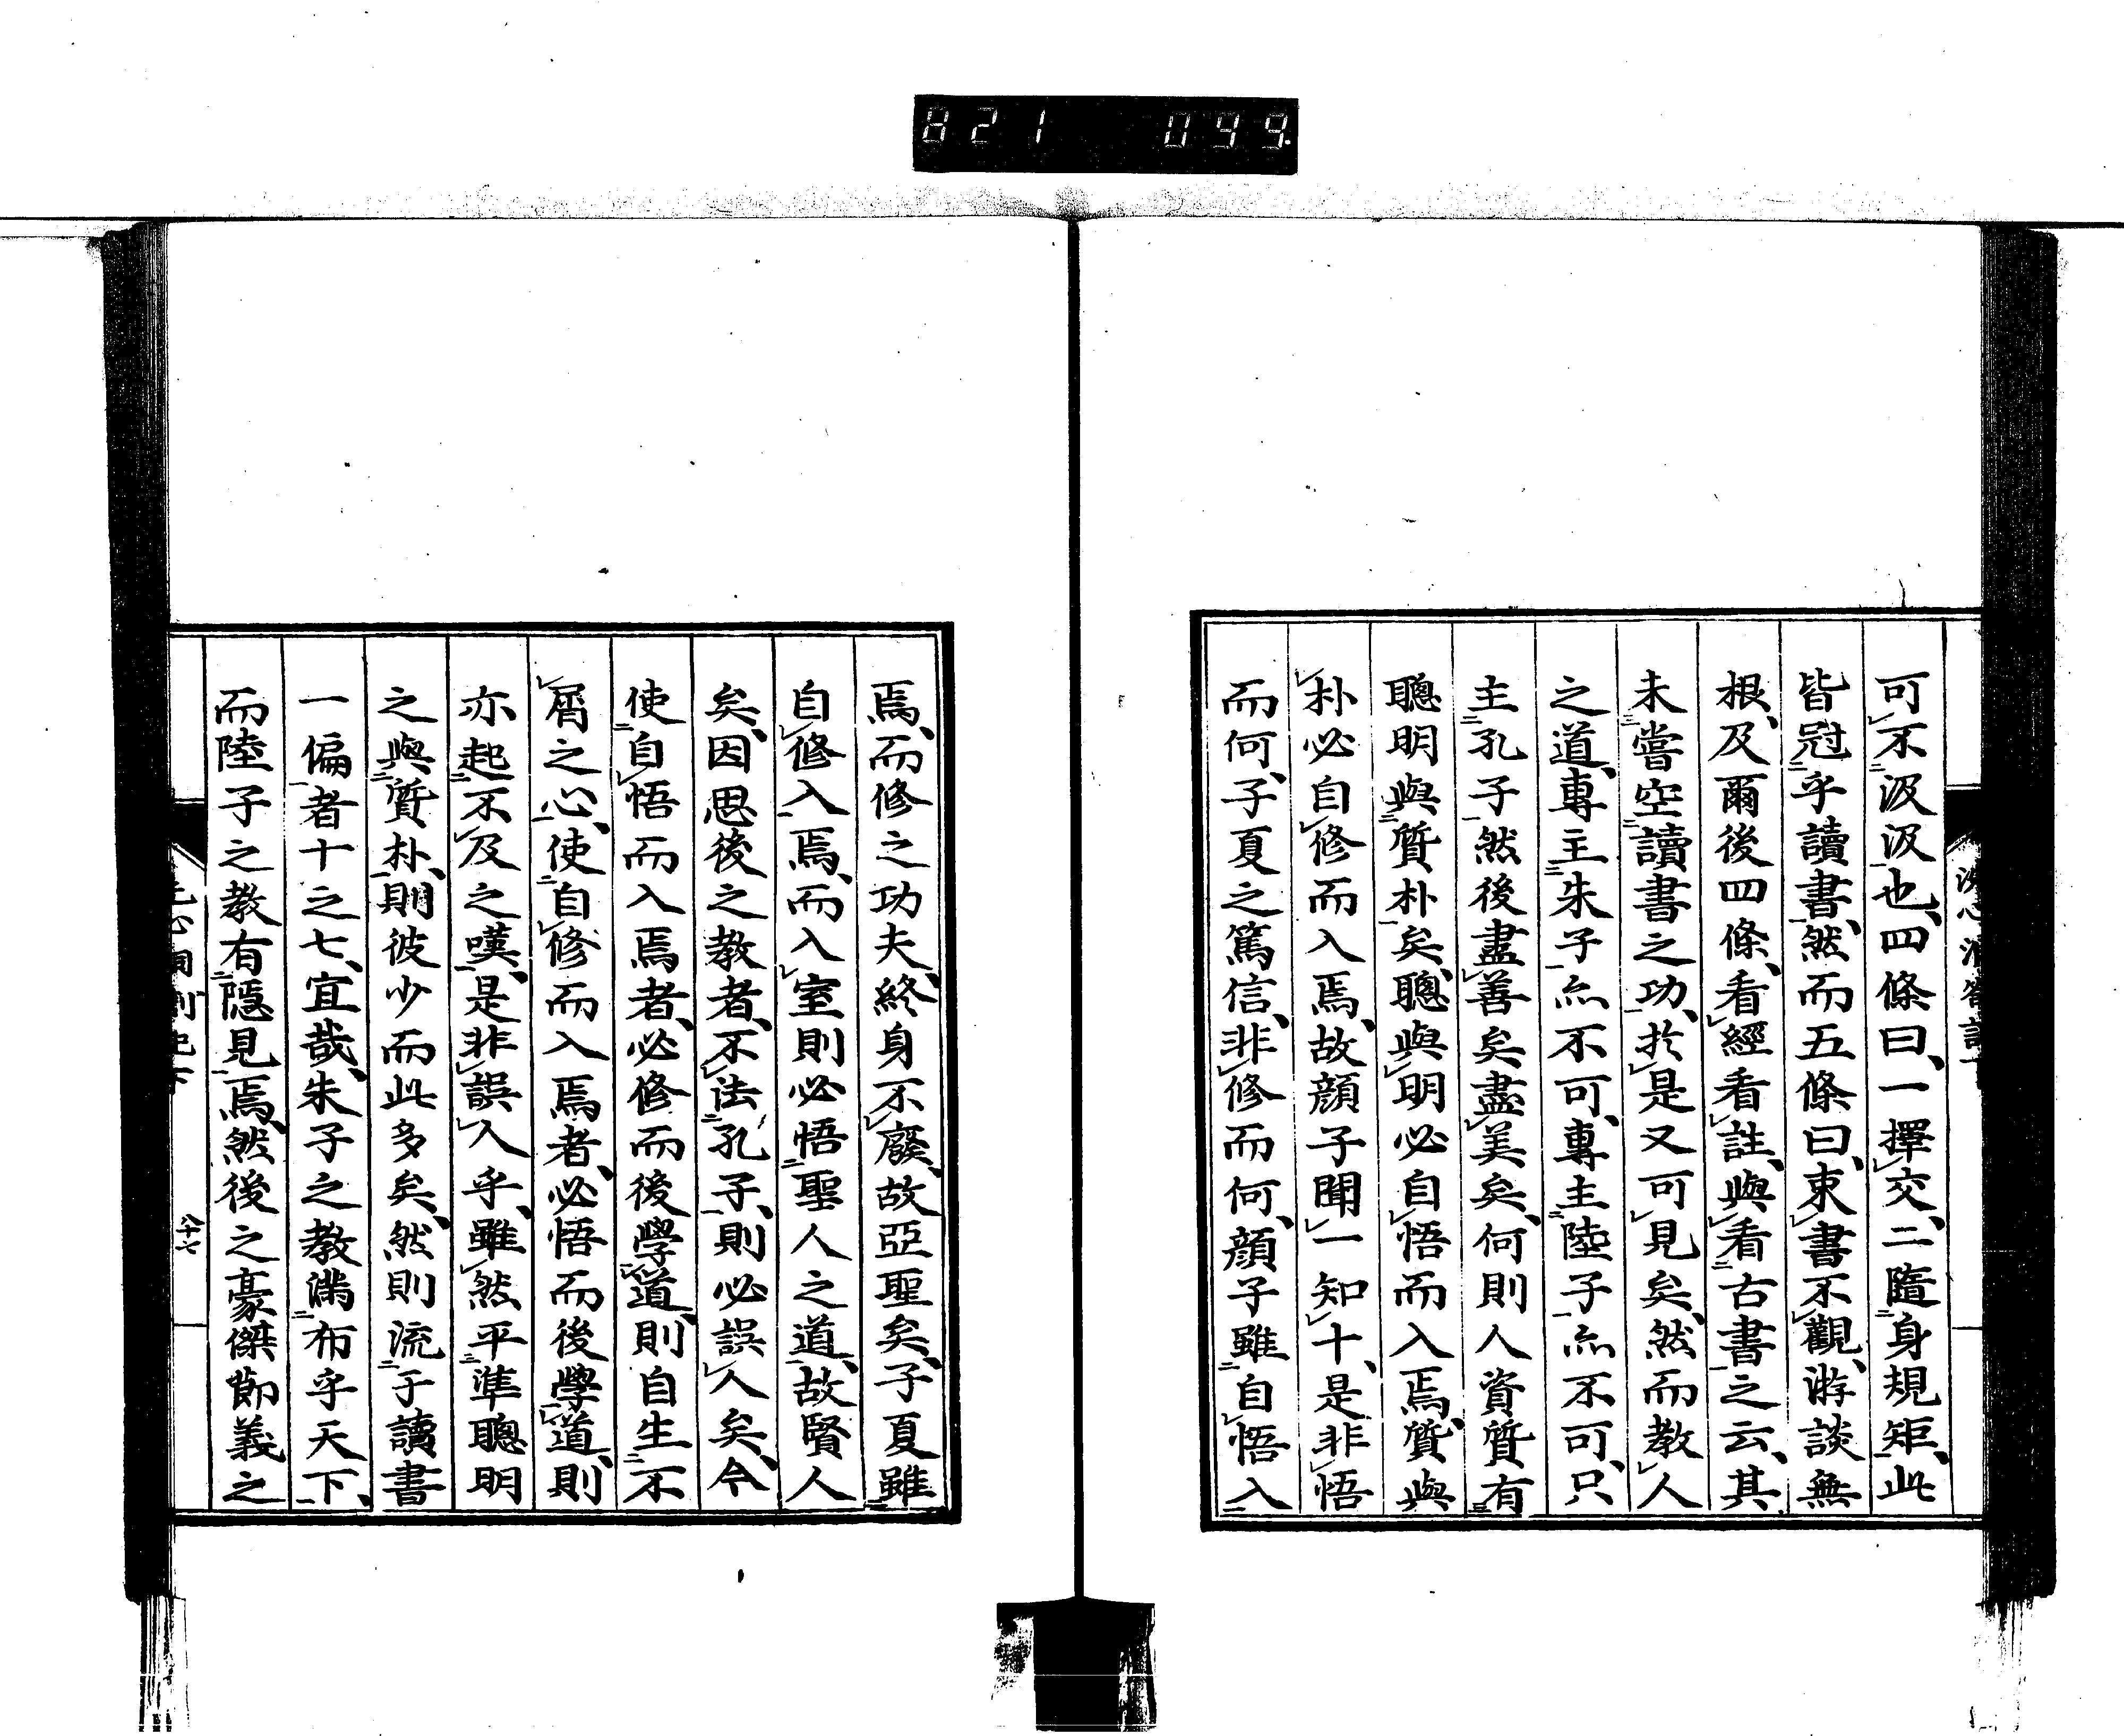 821 099.
可不汲汲也、四條曰、一擇交、二隨身規矩、此
皆冠乎讀書、然而五條曰、束書不觀、游談無
根、及爾後四條、看經看註、與看古書之云、其
未嘗空讀書之功、於是又可見矣、然而教人
之道、專主朱子亦不可、專主陸子亦不可、只
主孔子然後盡善矣盡美矣、何則人資質有
聰明與質朴矣、聰與明必自悟而入焉、質與
朴必自修而入焉、故顔子聞一知十、是非悟
而何、子夏之篤信、非修而何、顔子雖自悟入
焉、而修之功夫、終身不廢、故亞聖矣、子夏雖
自修入焉、而入室則必悟聖人之道、故賢人
矣、因思後之教者、不法孔子、則必誤人矣、令
使自悟而入焉者、必修而後學道、則自生不
屑之心、使自修而入焉者、必悟而後學道、則
亦起不及之嘆、是非誤人乎、雖然平準聰明
之與質朴、則彼少而此多矣、然則流于讀書
一偏者十之七、宜哉、朱子之教滿布乎天下、
而陸子之教有隱見焉、然後之豪傑節義之
八十七